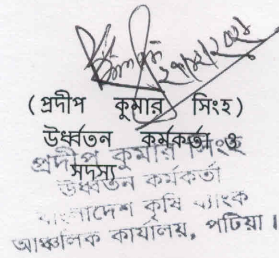 (প্রদীপ কুমার সিংহ)
উর্ধ্বতন কর্মকর্তা ও
সদস্য
প্রদীপ কুমার সিংহ
উর্ধ্বতন কর্মকর্তা
বাংলাদেশ কৃষি ব্যাংক
আঞ্চলিক কার্যালয়, পটিয়া।